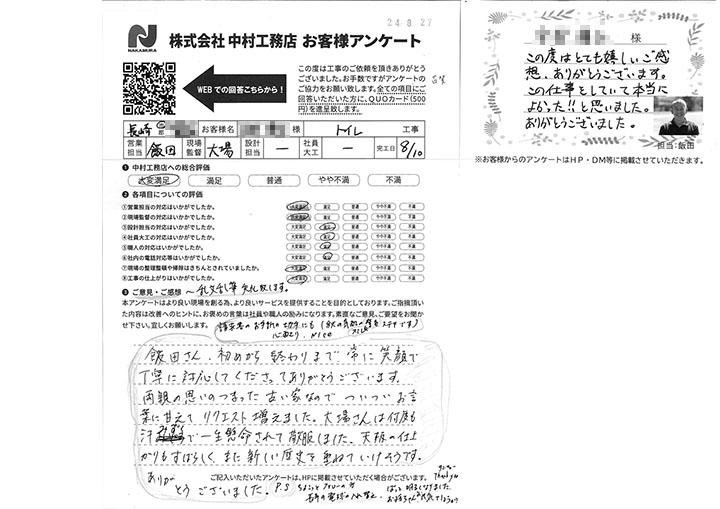 24.8.27
NAKAMURA
株式会社 中村工務店 お客様アンケート
WEB での回答こちらから!
この度は工事のご依頼を頂きありがとう
ございました。お手数ですがアンケートの
ご協力をお願い致します。全ての項目にご
回答いただいた方に、QUOカード(500
円)を進呈致します。
長崎 お客様名 様 トイレ 工事
営業担当 飯田 現場監督 大場 設計担当 ー 社員大工 ー 完工日 8/10
❶ 中村工務店への総合評価
大変満足 満足 普通 やや不満 不満
❷ 各項目についての評価
①営業担当の対応はいかがでしたか。 大変満足 満足 普通 やや不満 不満
②現場監督の対応はいかがでしたか。 大変満足 満足 普通 やや不満 不満
③設計担当の対応はいかがでしたか。 大変満足 満足 普通 やや不満 不満
④社員大工の対応はいかがでしたか。 大変満足 満足 普通 やや不満 不満
⑤職人の対応はいかがでしたか。 大変満足 満足 普通 やや不満 不満
⑥社内の電話対応等はいかがでしたか。 大変満足 満足 普通 やや不満 不満
⑦現場の整理整頓や掃除はきちんとされていましたか。 大変満足 満足 普通 やや不満 不満
⑧工事の仕上がりはいかがでしたか。 大変満足 満足 普通 やや不満 不満
❸ ご意見・ご感想 〜乱文乱筆 失礼致します。
本アンケートはより良い現場を創る為、より良いサービスを提供することを目的としております。ご指摘頂い
た内容は改善へのヒントに、お褒めの言葉は社員や職人の励みになります。素直なご意見、ご要望をお聞か
せ下さい。宜しくお願いします。
飯田さん、初めから 終わりまで 常に 笑顔で
丁寧に 対応してくださってありがとうございます。
両親の思いのつまった 古い家なので ついつい お言
葉に甘えて リクエスト増えました。大場さんは何度も
汗 で一生懸命されて 敬服しました。天板の仕上
がりもすばらしく、また 新しい歴史を 重ねていけそうです。
ありが
とう ございました。
P.S
ご記入いただいたアンケートは、HPに掲載させていただく場合がございます。
様
この度はとても嬉しいご感
想、ありがとうございます。
この仕事をしていて本当に
よかった!!と思いました。
ありがとうございました。
担当:飯田
※お客様からのアンケートはHP・DM等に掲載させていただきます。